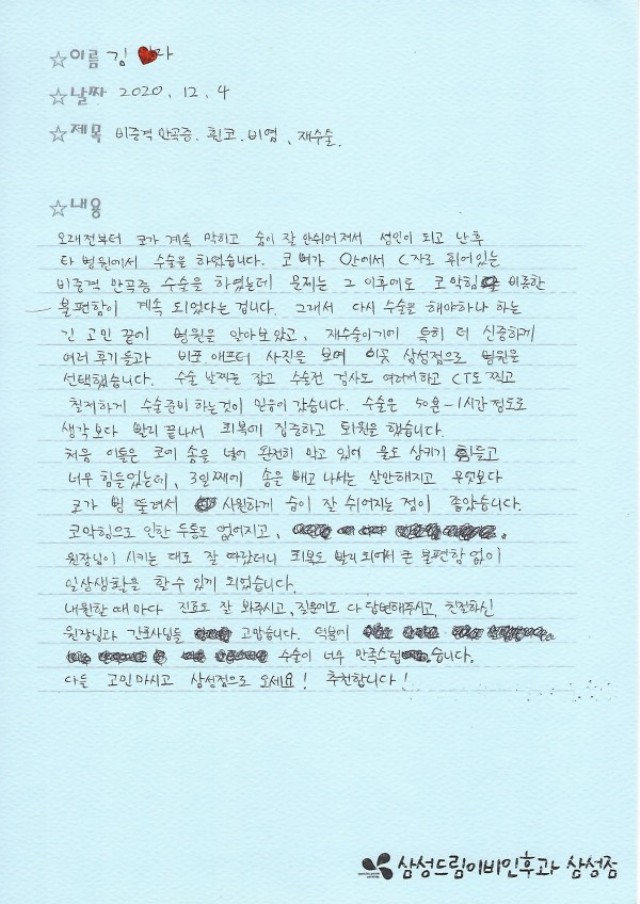 ☆이름 김 ♥다
☆날짜 2020. 12. 4
☆제목 비중격만곡증. 휜코. 비염, 재수술.
☆내용
오래전부터 코가 계속 막히고 숨이 잘 안쉬어져서 성인이 되고 난후
타 병원에서 수술을 하였습니다. 코 뼈가 안에서 C자로 휘어있는
비중격 만곡증 수술을 하였는데 문제는 그 이후에도 코막힘 비롯한
불편함이 계속 되었다는 겁니다. 그래서 다시 수술을 해야하나 하는
긴 고민 끝에 병원을 알아보았고, 재수술이기에 특히 더 신중하게
여러 후기들과 비포 애프터 사진을 보며 이곳 삼성점으로 병원을
선택했습니다. 수술 날짜를 잡고 수술전 검사도 여러개하고 CT도 찍고
철저하게 수술준비 하는것이 믿음이 갔습니다. 수술은 50분-1시간 정도로
생각보다 빨리 끝나서 회복에 집중하고 퇴원을 했습니다.
처음 이틀은 코에 솜을 넣어 완전히 막고 있어 물도 삼키기 힘들고
너무 힘들었는데, 3일째에 솜을 빼고 나서는 살만해지고 무엇보다
코가 뻥 뚫려서 시원하게 숨이 잘 쉬어지는 점이 좋았습니다.
코막힘으로 인한 두통도 없어지고,
원장님이 시키는 대로 잘 따랐더니 회복도 빨리 되어서 큰 불편함 없이
일상생활을 할 수 있게 되었습니다.
내원할 때 마다 진료도 잘 봐주시고, 질문에도 다 답변해주시고, 친절하신
원장님과 간호사님들 고맙습니다. 덕분에
수술이 너무 만족스럽습니다.
다들 고민마시고 삼성점으로 오세요! 추천합니다!
삼성드림이비인후과 삼성점